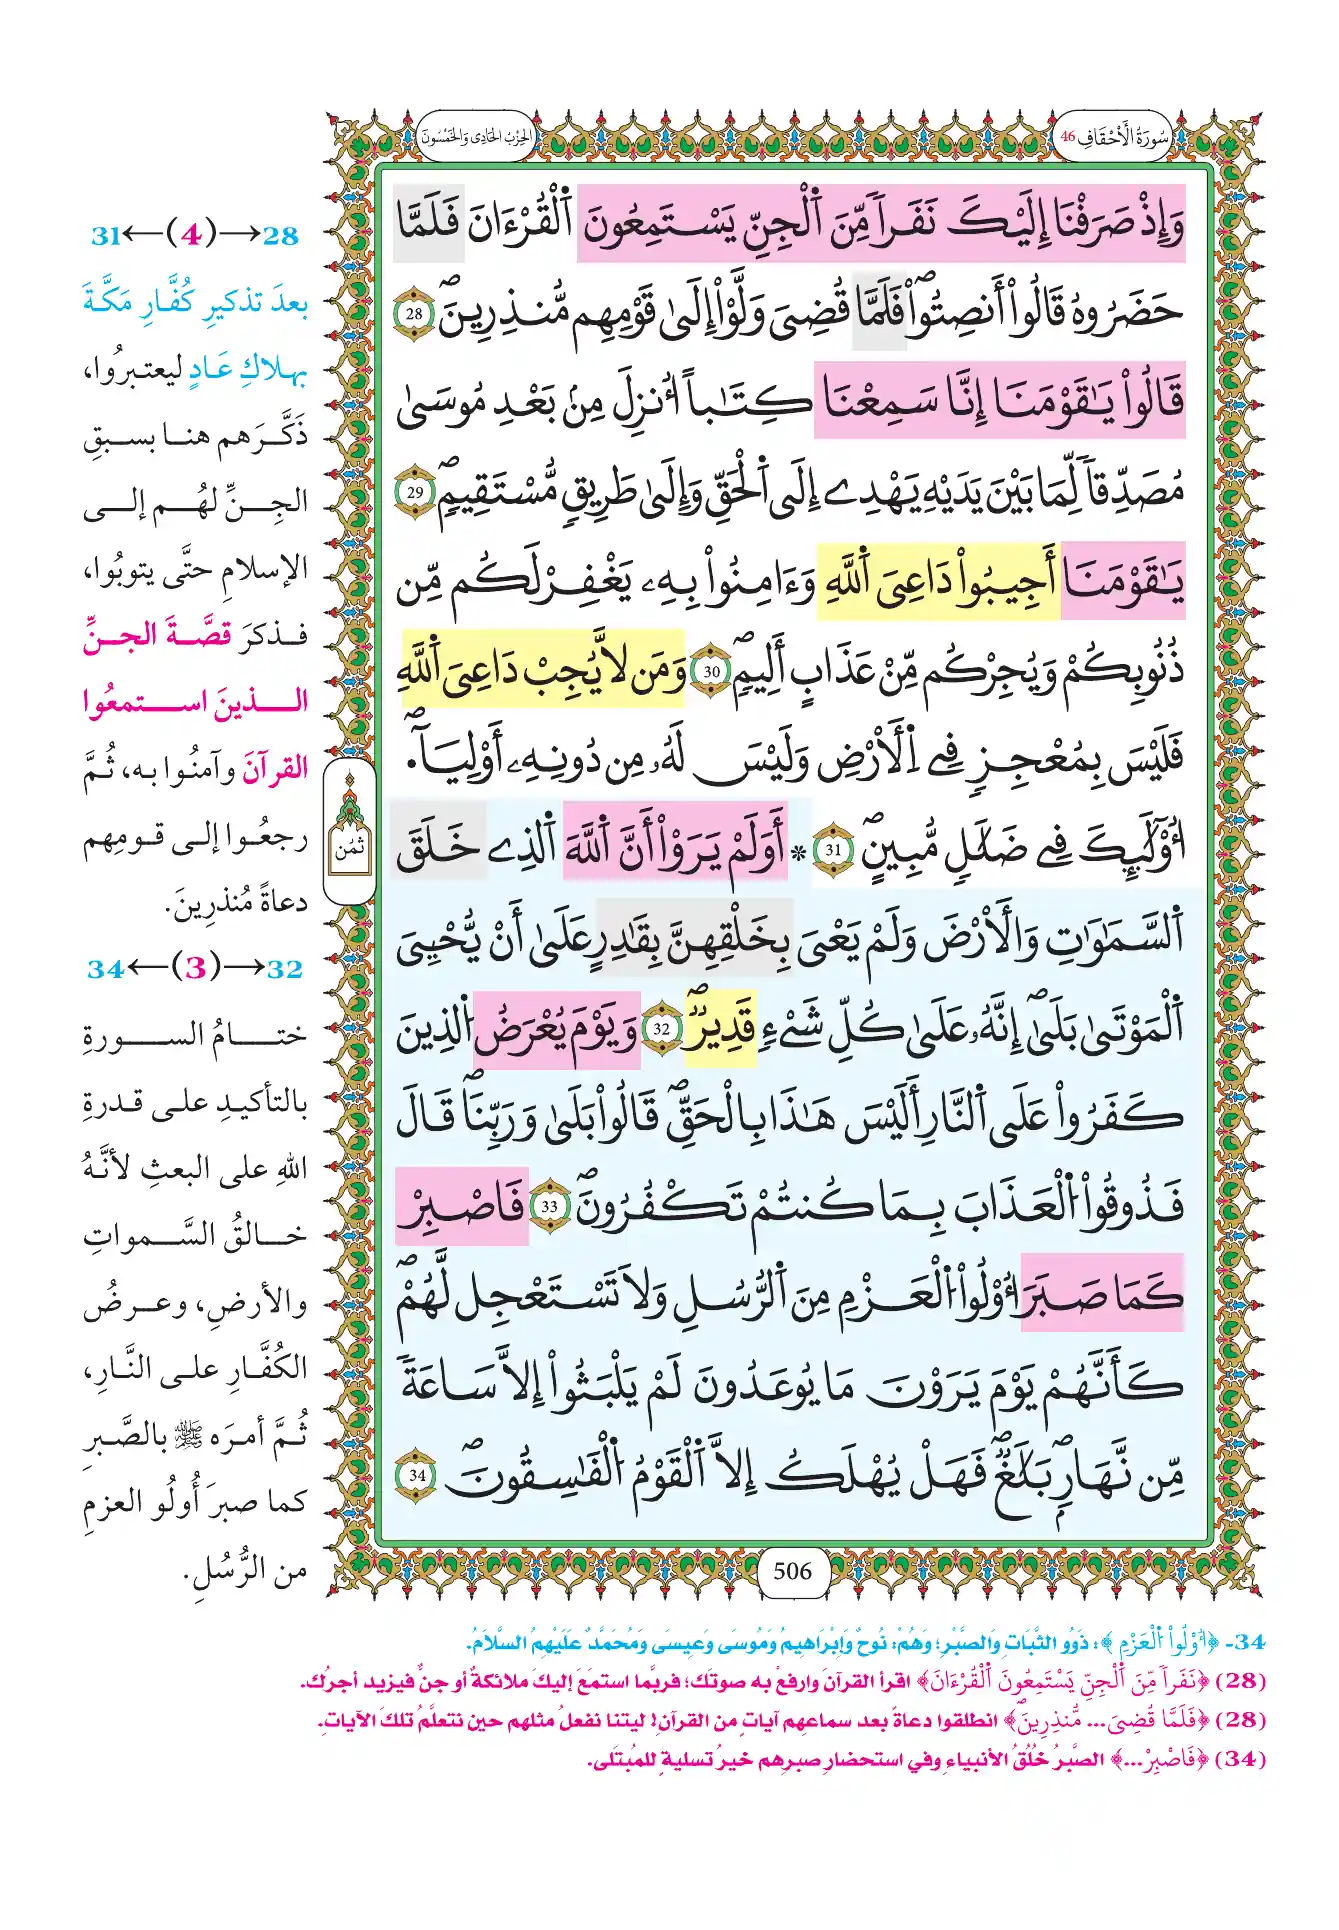 سُورَةُ الْأَحْقَافِ 46
الحِزْبُ الحَادِي وَالخَمْسُونَ
وَإِذْ صَرَفْنَا إِلَيْكَ نَفَراٗ مِّنَ اَ۬لْجِنِّ يَسْتَمِعُونَ اَ۬لْقُرْءَانَ فَلَمَّا
حَضَرُوهُ قَالُوٓاْ أَنصِتُواْۖ فَلَمَّا قُضِيَ وَلَّوِاْ اِلَىٰ قَوْمِهِم مُّنذِرِينَۖ 28
قَالُواْ يَٰقَوْمَنَا إِنَّا سَمِعْنَا كِتَٰباً ا۟نزِلَ مِنۢ بَعْدِ مُوسَىٰ
مُصَدِّقاٗ لِّمَا بَيْنَ يَدَيْهِ يَهْدِےٓ إِلَى اَ۬لْحَقِّ وَإِلَىٰ طَرِيقٖ مُّسْتَقِيمٖۖ 29
يَٰقَوْمَنَا أَجِيبُواْ دَاعِيَ اَ۬للَّهِ وَءَامِنُواْ بِهِۦ يَغْفِرْ لَكُم مِّن
ذُنُوبِكُمْ وَيُجِرْكُم مِّنْ عَذَابٍ أَلِيمٖۖ 30 وَمَن لَّا يُجِبْ دَاعِيَ اَ۬للَّهِ
فَلَيْسَ بِمُعْجِزٖ فِے اِ۬لْأَرْضِ وَلَيْسَ لَهُۥ مِن دُونِهِۦٓ أَوْلِيَآءُۖ
ا۟وْلَٰٓئِكَ فِے ضَلَٰلٖ مُّبِينٍۖ 31 * أَوَلَمْ يَرَوَاْ أَنَّ اَ۬للَّهَ اَ۬لذِے خَلَقَ
اَ۬لسَّمَٰوَٰتِ وَالْأَرْضَ وَلَمْ يَعْيَ بِخَلْقِهِنَّ بِقَٰدِرٍ عَلَىٰٓ أَنْ يُّحْـِۧيَ
اَ۬لْمَوْتَىٰ بَلَىٰٓۖ إِنَّهُۥ عَلَىٰ كُلِّ شَےْءٖ قَدِيرٞۖ 32 وَيَوْمَ يُعْرَضُ اُ۬لذِينَ
كَفَرُواْ عَلَى اَ۬لنَّارِ أَلَيْسَ هَٰذَا بِالْحَقِّۖ قَالُواْ بَلَىٰ وَرَبِّنَاۖ قَالَ
فَذُوقُواْ اُ۬لْعَذَابَ بِمَا كُنتُمْ تَكْفُرُونَۖ 33 فَاصْبِرْ
كَمَا صَبَرَ ا۟وْلُواْ اُ۬لْعَزْمِ مِنَ اَ۬لرُّسُلِ وَلَا تَسْتَعْجِل لَّهُمْۖ
كَأَنَّهُمْ يَوْمَ يَرَوْنَ مَا يُوعَدُونَ لَمْ يَلْبَثُوٓاْ إِلَّا سَاعَةٗ
مِّن نَّهَارِۢ بَلَٰغٞۖ فَهَلْ يُهْلَكُ إِلَّا اَ۬لْقَوْمُ اُ۬لْفَٰسِقُونَۖ 34
ثُمُن
506
28→(4)←31
بعدَ تذكيرِ كُفَّارِ مَكَّةَ
بهلاكِ عَادٍ ليعتبرُوا،
ذَكَّرَهم هنا بسبقِ
الجِنِّ لهُم إلى
الإسلامِ حتَّى يتوبُوا،
فذكرَ قصَّةَ الجنِّ
الذينَ استمعُوا
القرآنَ وآمنُوا به، ثُمَّ
رجعُوا إلى قومِهم
دعاةً مُنذرِينَ.
32→(3)←34
ختامُ السورةِ
بالتأكيدِ على قدرةِ
اللهِ على البعثِ لأنَّهُ
خالقُ السَّمواتِ
والأرضِ، وعرضُ
الكُفَّارِ على النَّارِ،
ثُمَّ أمرَه ﷺ بالصَّبرِ
كما صبرَ أُولُو العزمِ
من الرُّسُلِ.
34- ﴿ا۟وْلُواْ اُ۬لْعَزْمِ﴾: ذَوُو الثَّبَاتِ وَالصَّبْرِ؛ وَهُمْ: نُوحٌ وَإِبْرَاهِيمُ وَمُوسَى وَعِيسَى وَمُحَمَّدٌ عَلَيْهِمُ السَّلَامُ.
(28) ﴿نَفَراٗ مِّنَ اَ۬لْجِنِّ يَسْتَمِعُونَ اَ۬لْقُرْءَانَ﴾ اقرأ القرآنَ وارفعْ به صوتَك؛ فربَّما استمَعَ إليكَ ملائكةٌ أو جنٌّ فيزيد أجرُك.
(28) ﴿فَلَمَّا قُضِيَ... مُّنذِرِينَۖ﴾ انطلقوا دعاةً بعد سماعهم آياتٍ من القرآنِ! ليتنا نفعلُ مثلهم حين نتعلَّمُ تلكَ الآياتِ.
(34) ﴿فَاصْبِرْ...﴾ الصَّبرُ خُلُقُ الأنبياءِ وفي استحضارِ صبرِهم خيرُ تسليةٍ للمُبتَلَى.